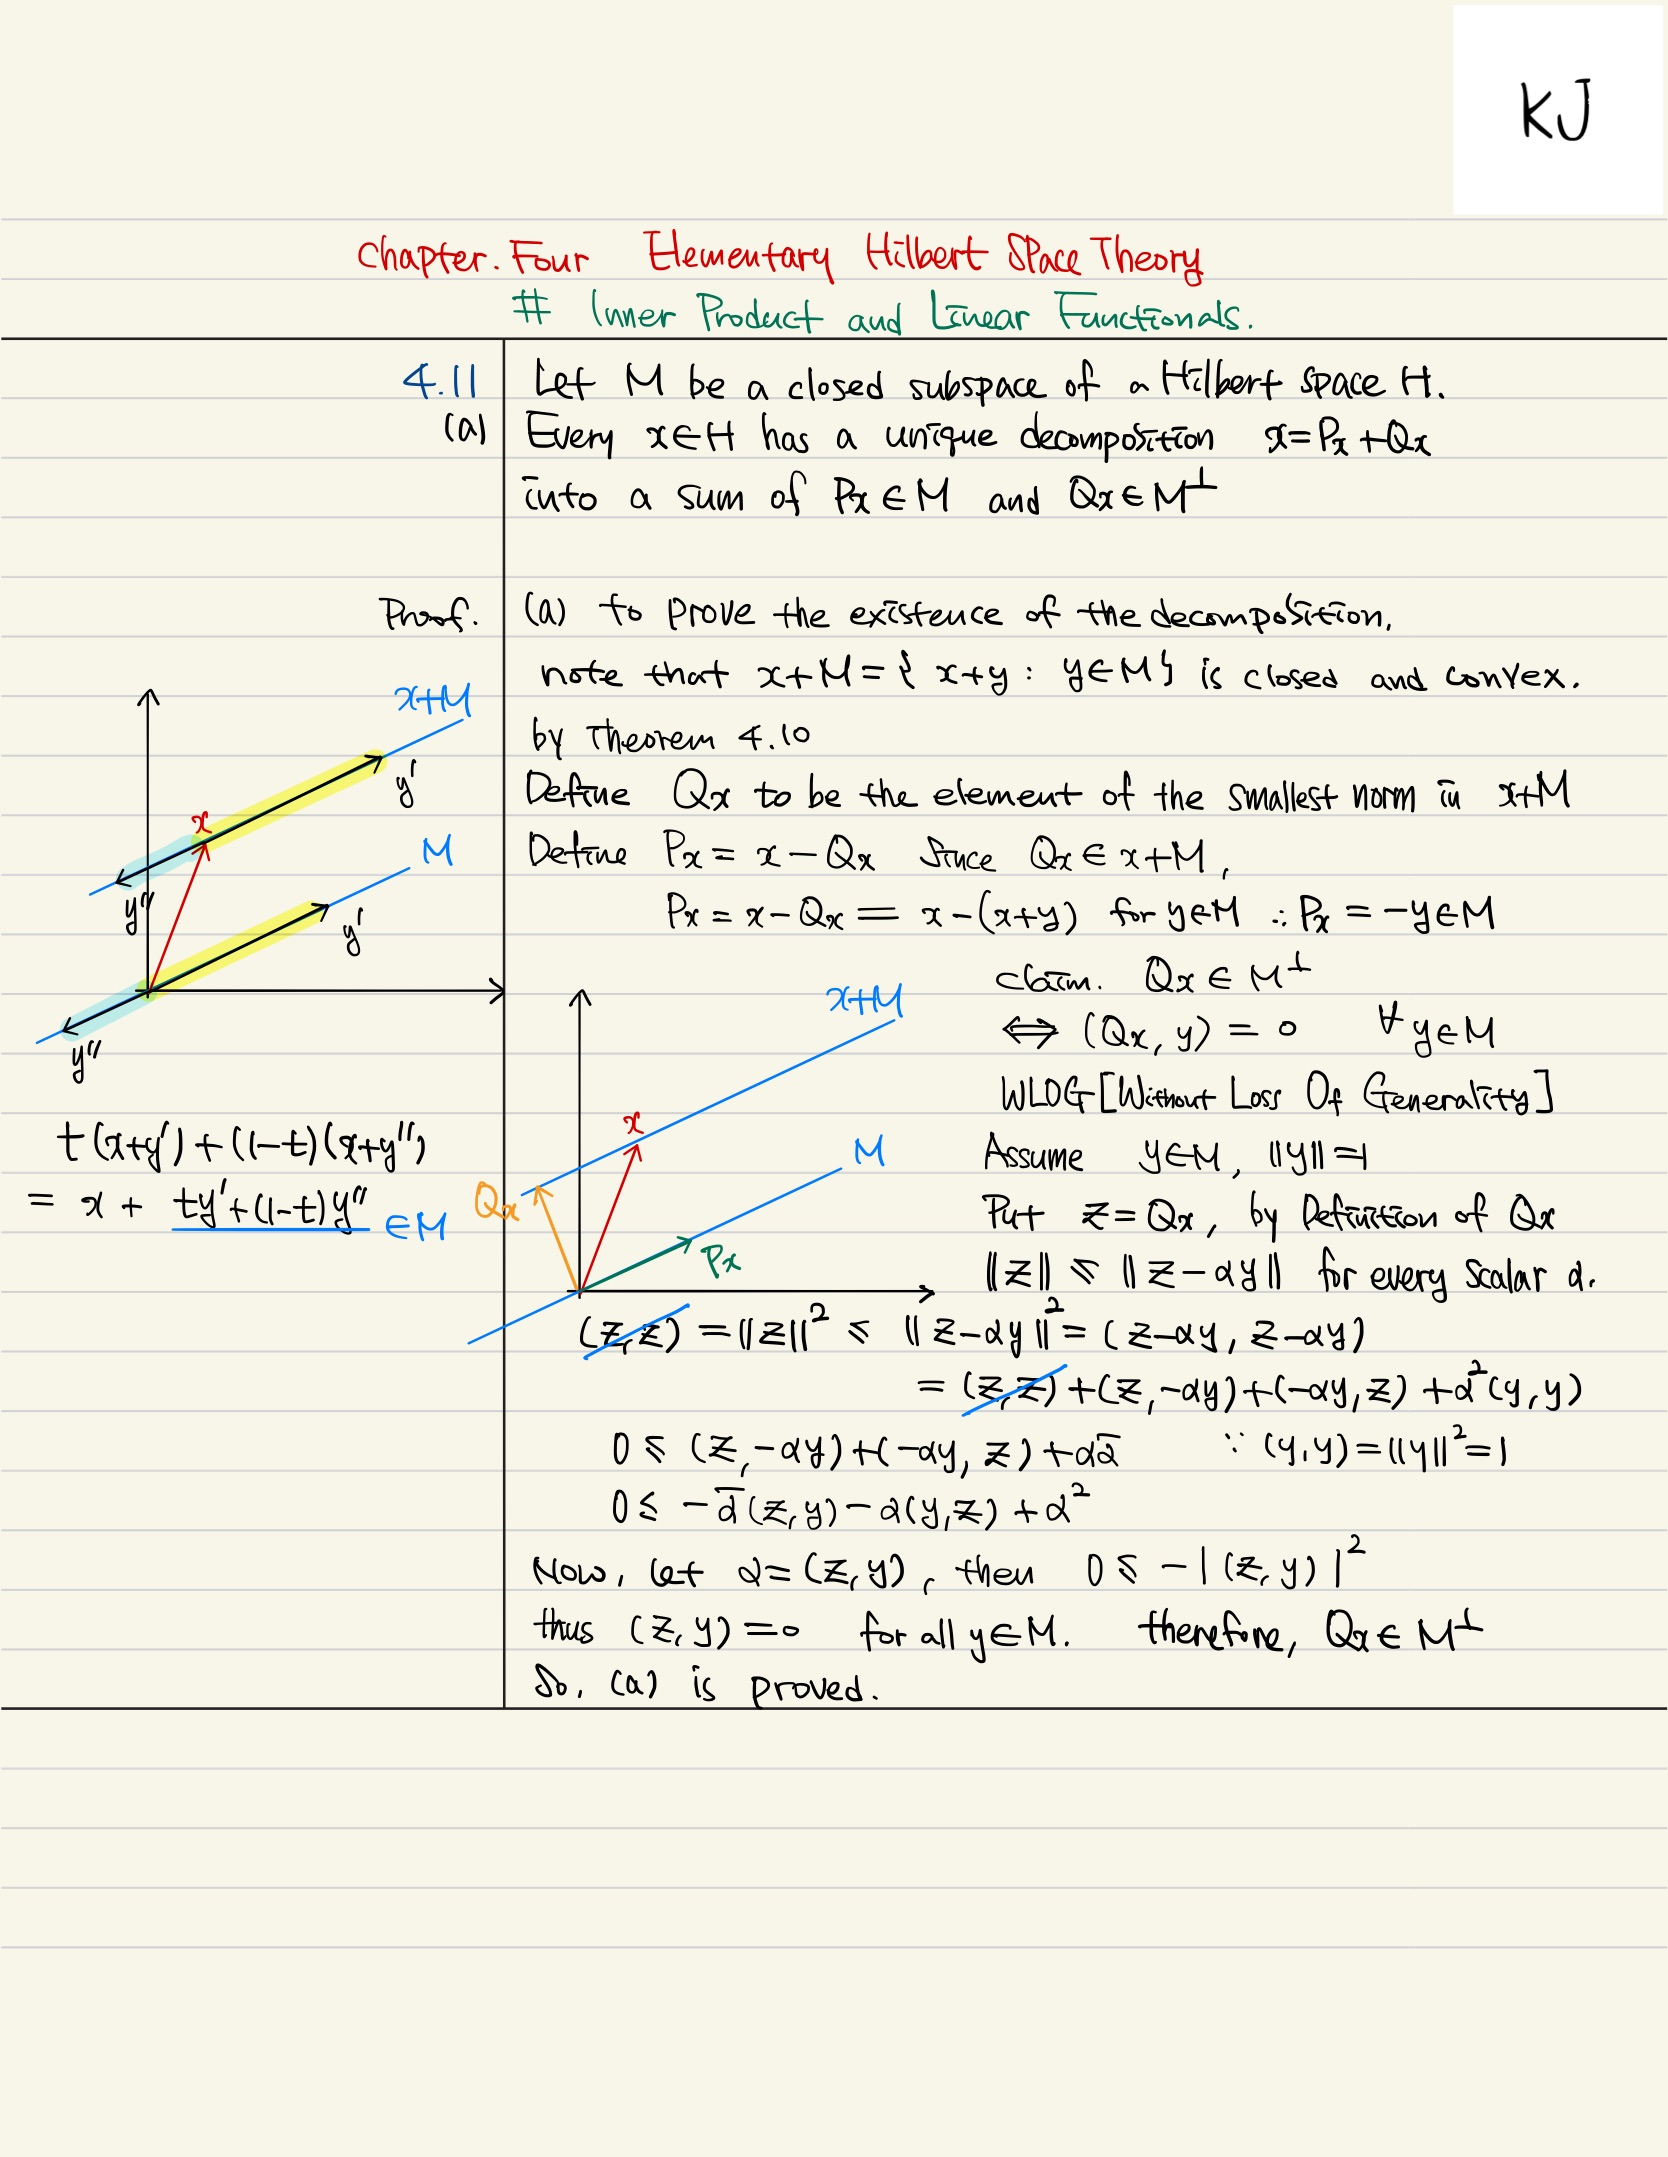 KJ
Chapter. Four Elementary Hilbert Space Theory
# Inner Product and Linear Functionals.
4.11 Let M be a closed subspace of a Hilbert space H.
(a) Every x∈H has a unique decomposition x=Px+Qx
into a sum of Px∈M and Qx∈M⊥
Proof. (a) to prove the existence of the decomposition,
note that x+M={ x+y : y∈M} is closed and convex.
by Theorem 4.10
Define Qx to be the element of the smallest norm in x+M
Define Px = x-Qx Since Qx∈x+M,
Px = x-Qx = x-(x+y) for y∈M ∴Px = -y∈M
x+M
y'
x
y''
M
y'
y''
t(x+y')+(1-t)(x+y'')
= x + ty'+(1-t)y'' ∈M
x+M
x
M
Qx
Px
claim. Qx ∈ M⊥
⟺ (Qx, y) = 0 ∀y∈M
WLOG[Without Loss Of Generality]
Assume y∈M, ||y||=1
Put z=Qx, by Definition of Qx
||z|| ≤ ||z-αy|| for every scalar α.
(z,z) = ||z||² ≤ ||z-αy||² = (z-αy, z-αy)
= (z,z)+(z,-αy)+(-αy,z)+α²(y,y)
0 ≤ (z,-αy)+(-αy,z)+αᾱ ∵ (y,y)=||y||²=1
0 ≤ -ᾱ(z,y)-α(y,z)+α²
Now, let α=(z,y), then 0 ≤ -|(z,y)|²
thus (z,y)=0 for all y∈M. therefore, Qx∈M⊥
So, (a) is proved.